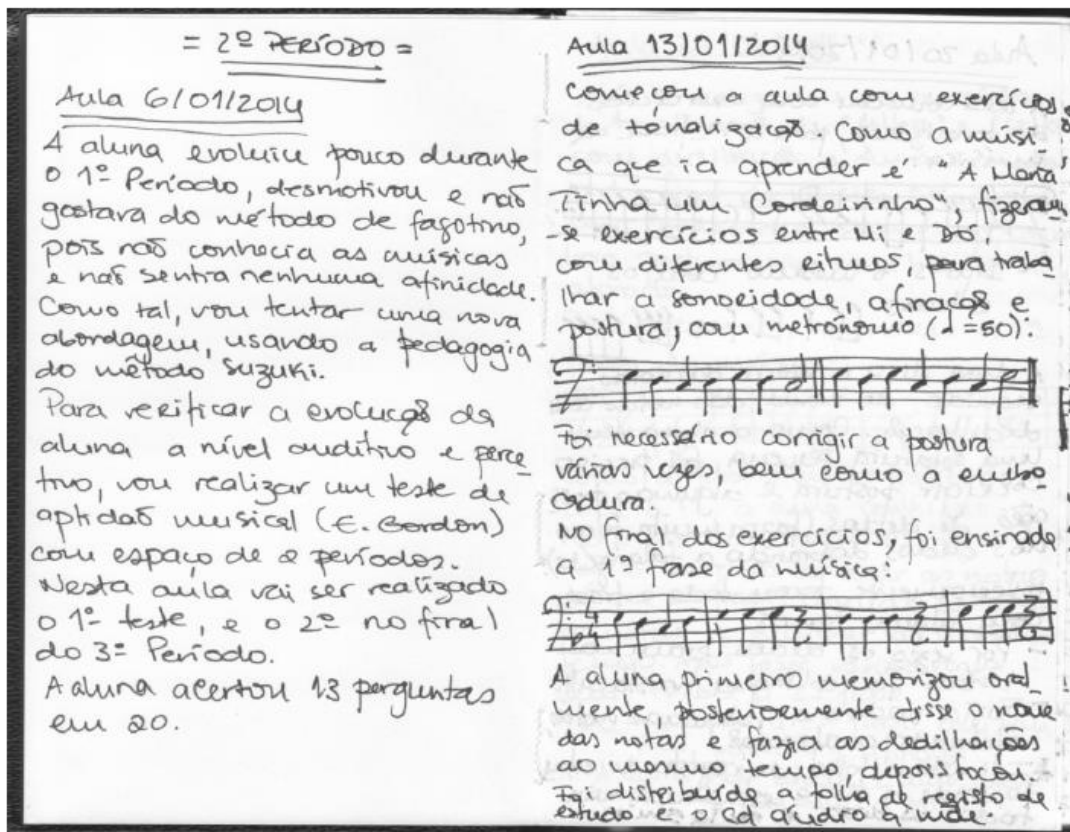 = 2º PERÍODO =
Aula 6/01/2014
A aluna evoluiu pouco durante
o 1º Período, desmotivou e não
gostava do método de fagotino,
pois não conhecia as músicas
e não sentia nenhuma afinidade.
Como tal, vou tentar uma nova
abordagem, usando a pedagogia
do método Suzuki.
Para verificar a evolução da
aluna a nível auditivo e perce-
tivo, vou realizar um teste de
aptidão musical (E. Gordon)
com espaço de 2 períodos.
Nesta aula vai ser realizado
o 1º teste, e o 2º no final
do 3º Período.
A aluna acertou 13 perguntas
em 20.
Aula 13/01/2014
Começou a aula com exercícios
de tonalização. Como a músi-
ca que ia aprender é "A Maria
Tinha um Cordeirinho", fizeram
-se exercícios entre Mi e Dó,
com diferentes ritmos, para traba-
lhar a sonoridade, afinação e
postura, com metrónomo (♩=50):
Foi necessário corrigir a postura
várias vezes, bem como a embo-
cadura.
No final dos exercícios, foi ensinada
a 1ª frase da música:
A aluna primeiro memorizou oral-
mente, posteriormente disse o nome
das notas e fazia as dedilhações
ao mesmo tempo, depois tocou.
Foi distribuída a folha de registo de
estudo e o cd áudio à mãe.